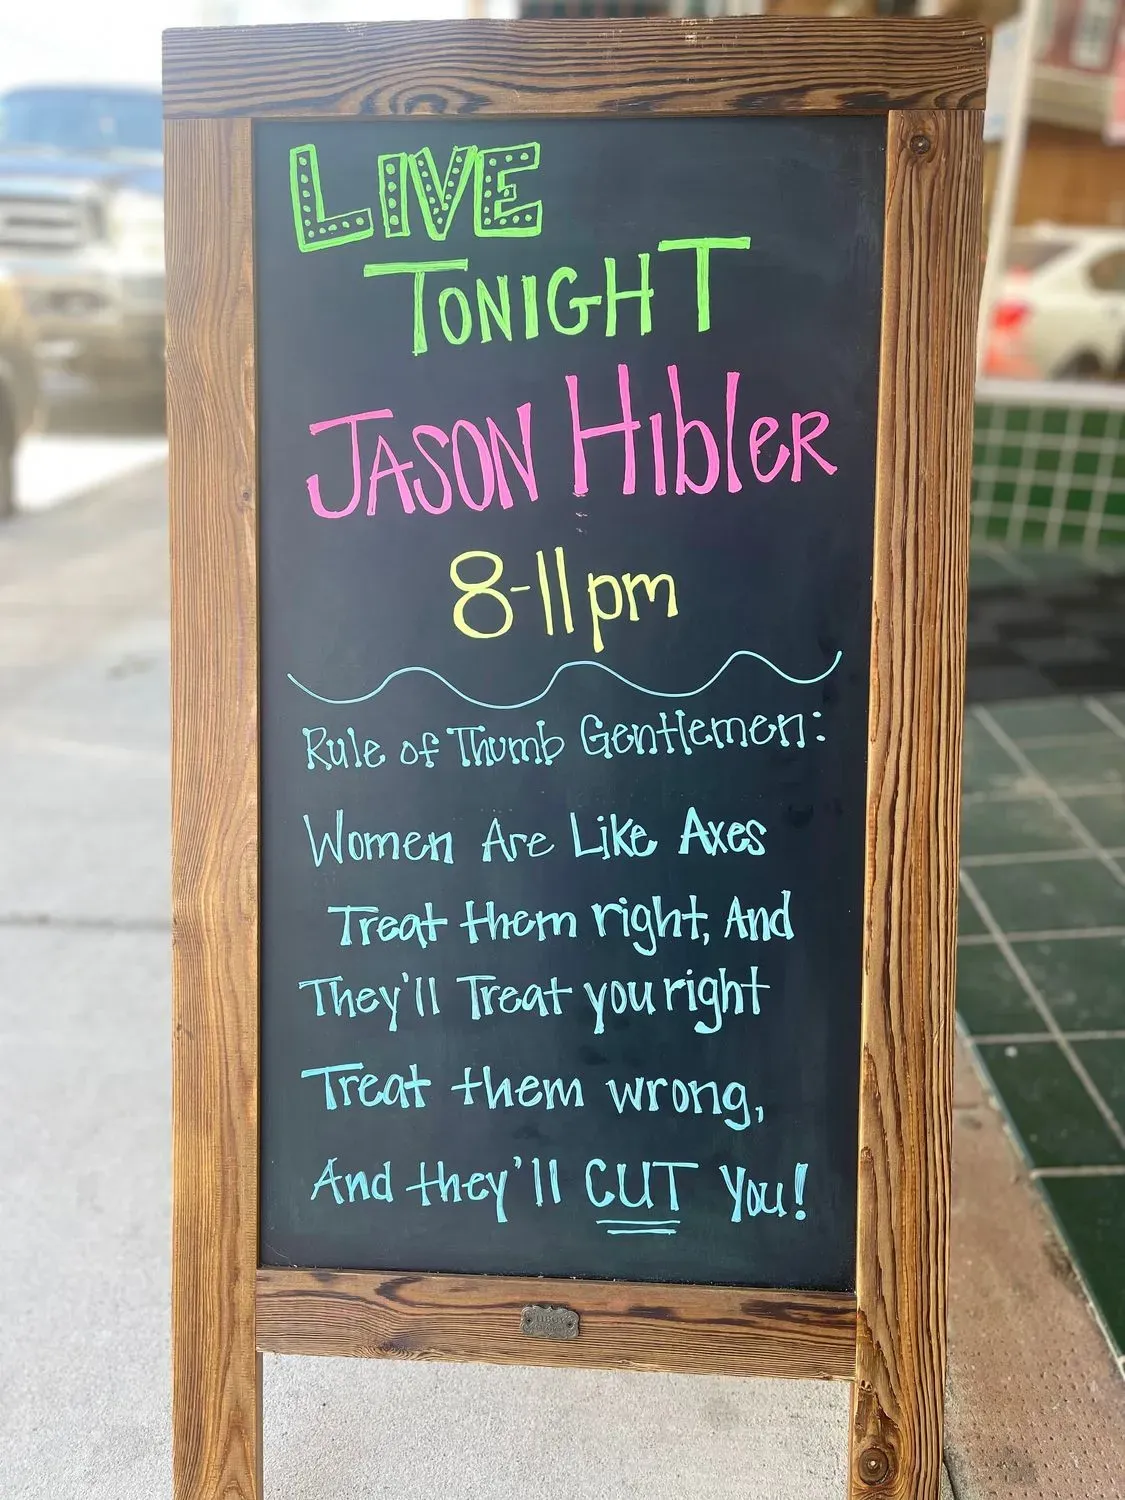 LIVE
TONIGHT
JASON HIblER
8-11pm
Rule of Thumb Gentlemen:
Women Are Like Axes
Treat them right, And
They'll Treat you right
Treat them wrong,
And they'll CUT You!